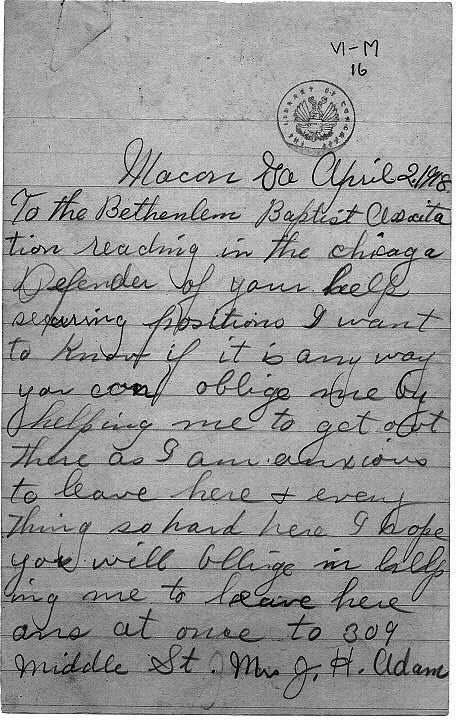 VI-M
16
THE LIBRARY OF CONGRESS
Macon Ga April 2, 1918
To the Bethenlem Baptist Asscita
tion reading in the chicaga
Defender of your help
securing positions I want
to know if it is any way
you can oblige me by
helping me to get out
there as I am anxious
to leave here & every
thing so hard here I hope
you will oblige in help
ing me to leave here
ans at once to 309
Middle St. Mrs J. H. Adam